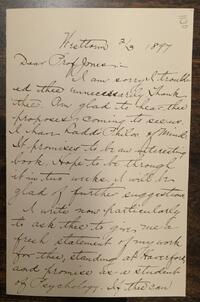 Westtown 2/3 1897
Dear Prof Jones:-
I am sorry I troubl
ed thee unnecessarily. Thank
thee. Am glad to hear thee
proposes coming to see us.
I have Ladd's Philos of Mind.
It promises to be an interesting
book. Hope to be through
it in two weeks. I will be
glad of further suggestions
I write now particularly
to ask thee to give me a
fresh statement of my work
for thee, standing at Haverford,
and promise as a student
of Psychology. In the can